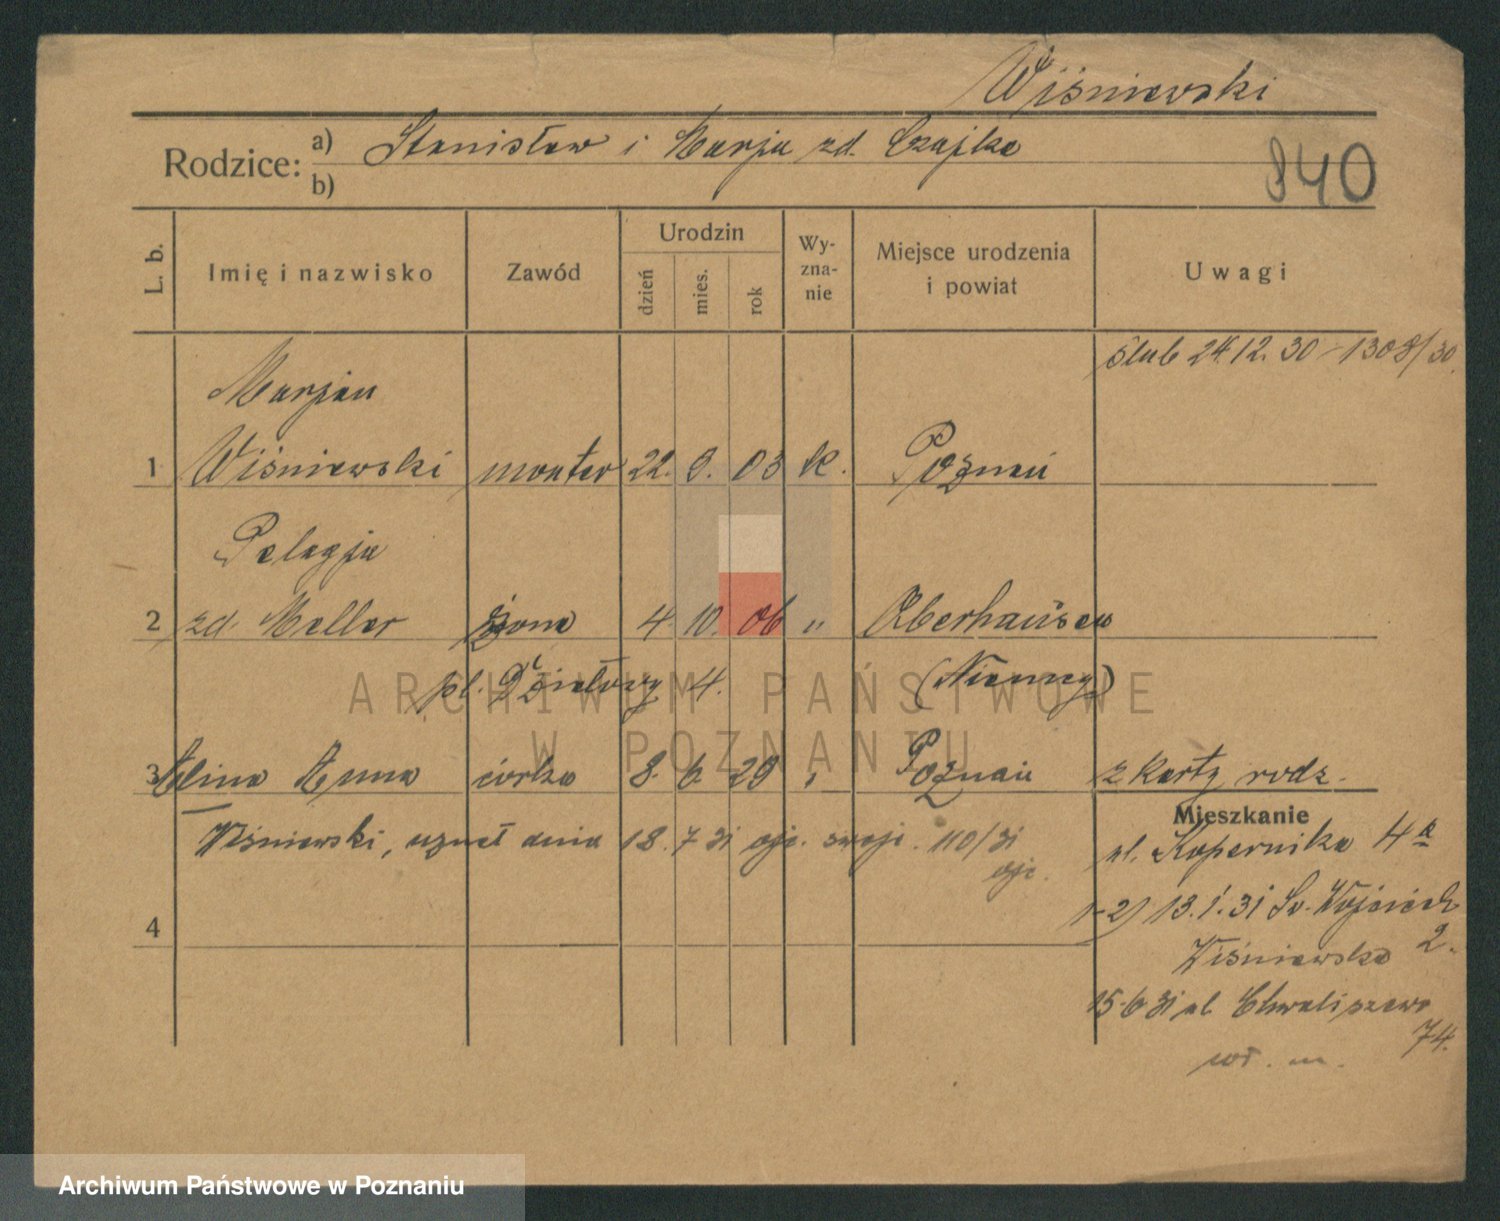 Wiśniewski
Rodzice: a) Stanisław i Marja zd. Czajka
b)
840
L. b.
Imię i nazwisko
Zawód
Urodzin
dzień
mies.
rok
Wy-
zna-
nie
Miejsce urodzenia
i powiat
Uwagi
ślub 24.12.30 - 1308/30.
Marjan
1 Wiśniewski monter 22. 9. 03 k. Poznań
Pelagja
2 zd. Meller żona 4. 10. 06 „ Oberhausen
pl. Działowy 4. (Niemcy)
3 Alina Anna córka 8. 6. 29 „ Poznań z karty rodz.
Wiśniewski, uznał dnia 18. 7 31 ojc. swoje. 110/31
ojc.
Mieszkanie
ul. Kopernika 4a
4
1-2) 13.1.31 Św. Wojciech
2.
Wiśniewska
15.6 31 ul. Chwaliszewo
74.
wł. m.
ARCHIWUM PAŃSTWOWE
W POZNANIU
Archiwum Państwowe w Poznaniu